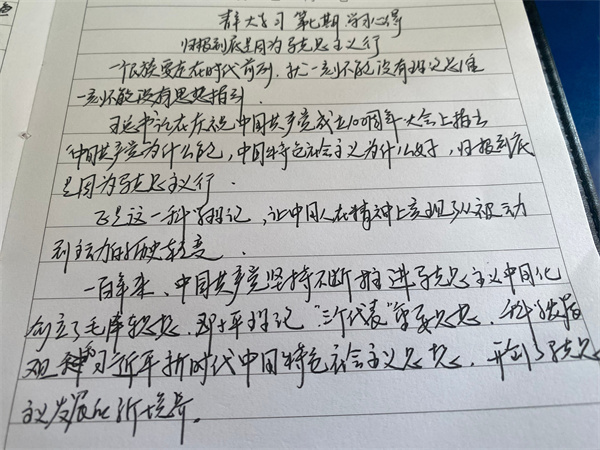 青年大学习 第七期 学习心得
归根到底是因为马克思主义行
一个民族要走在时代前列，就一刻不能没有理论思维
一刻不能没有思想指引．
习总书记在庆祝中国共产党成立100周年大会上指出
中国共产党为什么能，中国特色社会主义为什么好，归根到底
是因为马克思主义行．
正是这一科学理论，让中国人在精神上实现了从被动
到主动的历史转变
一百年来，中国共产党坚持不断推进马克思主义中国化
创立了毛泽东思想．邓小平理论“三个代表”重要思想．科学发展
观 习近平新时代中国特色社会主义思想．开创了马克思
主义发展的新境界。